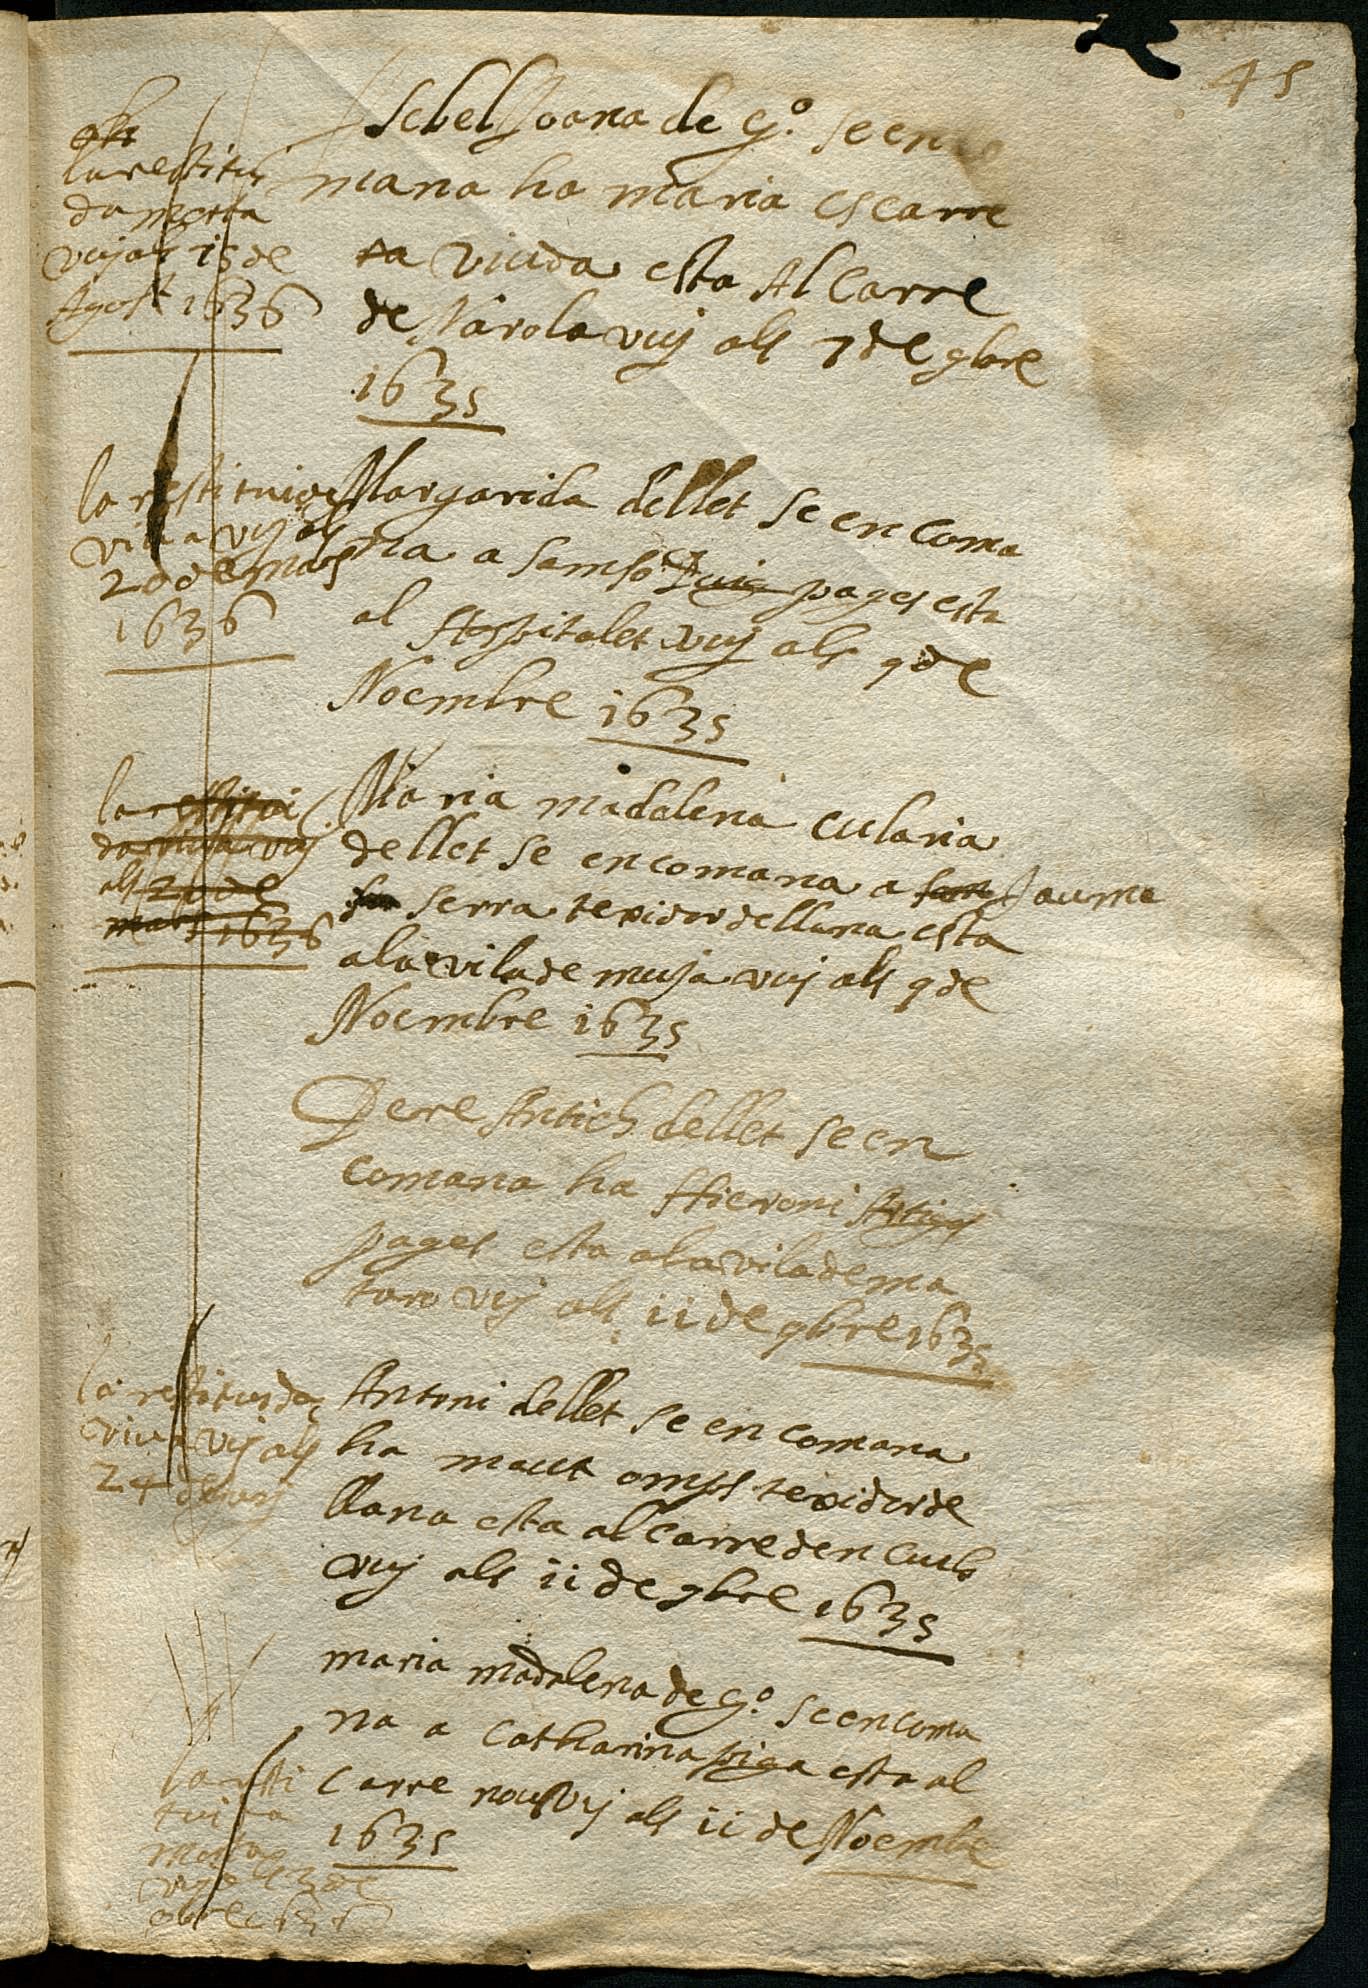 45
obt
la restitui
da morta
vuy als 15 de
Agost 1636
Isebel Joana de gº. se enco
mana ha maria escarre
ta viuda esta Al Carre
de Narola vuy als 7 de 9bre
1635
la restituida
viua vuy als
20 de mars
1636
Margarida de llet se encoma
na a samso Puig pages esta
al Hospitalet vuy als 9 de
Noembre 1635
la restitui
da viua vuy
als 20 de
mars 1636
Maria madalena eularia
de llet se encomana a Jaume
serra texidor de llana esta
a la vila de muja vuy als 9 de
Noembre 1635
Pere Antich de llet se en
comana ha Hieroni Artigas
pages esta a la vila de ma
taro vuy als 11 de 9bre 1635
la restituida
viua vuy als
24 de
Antoni de llet se encomana
ha maut omps texidor de
llana esta al carre den Cuch
vuy als 11 de 9bre 1635
la resti
tuida
morta
vuy als 3 de
9bre 1636
maria madalena de gº. se encoma
na a Catharina piga esta al
Carre nou vuy als 11 de Noembre
1635